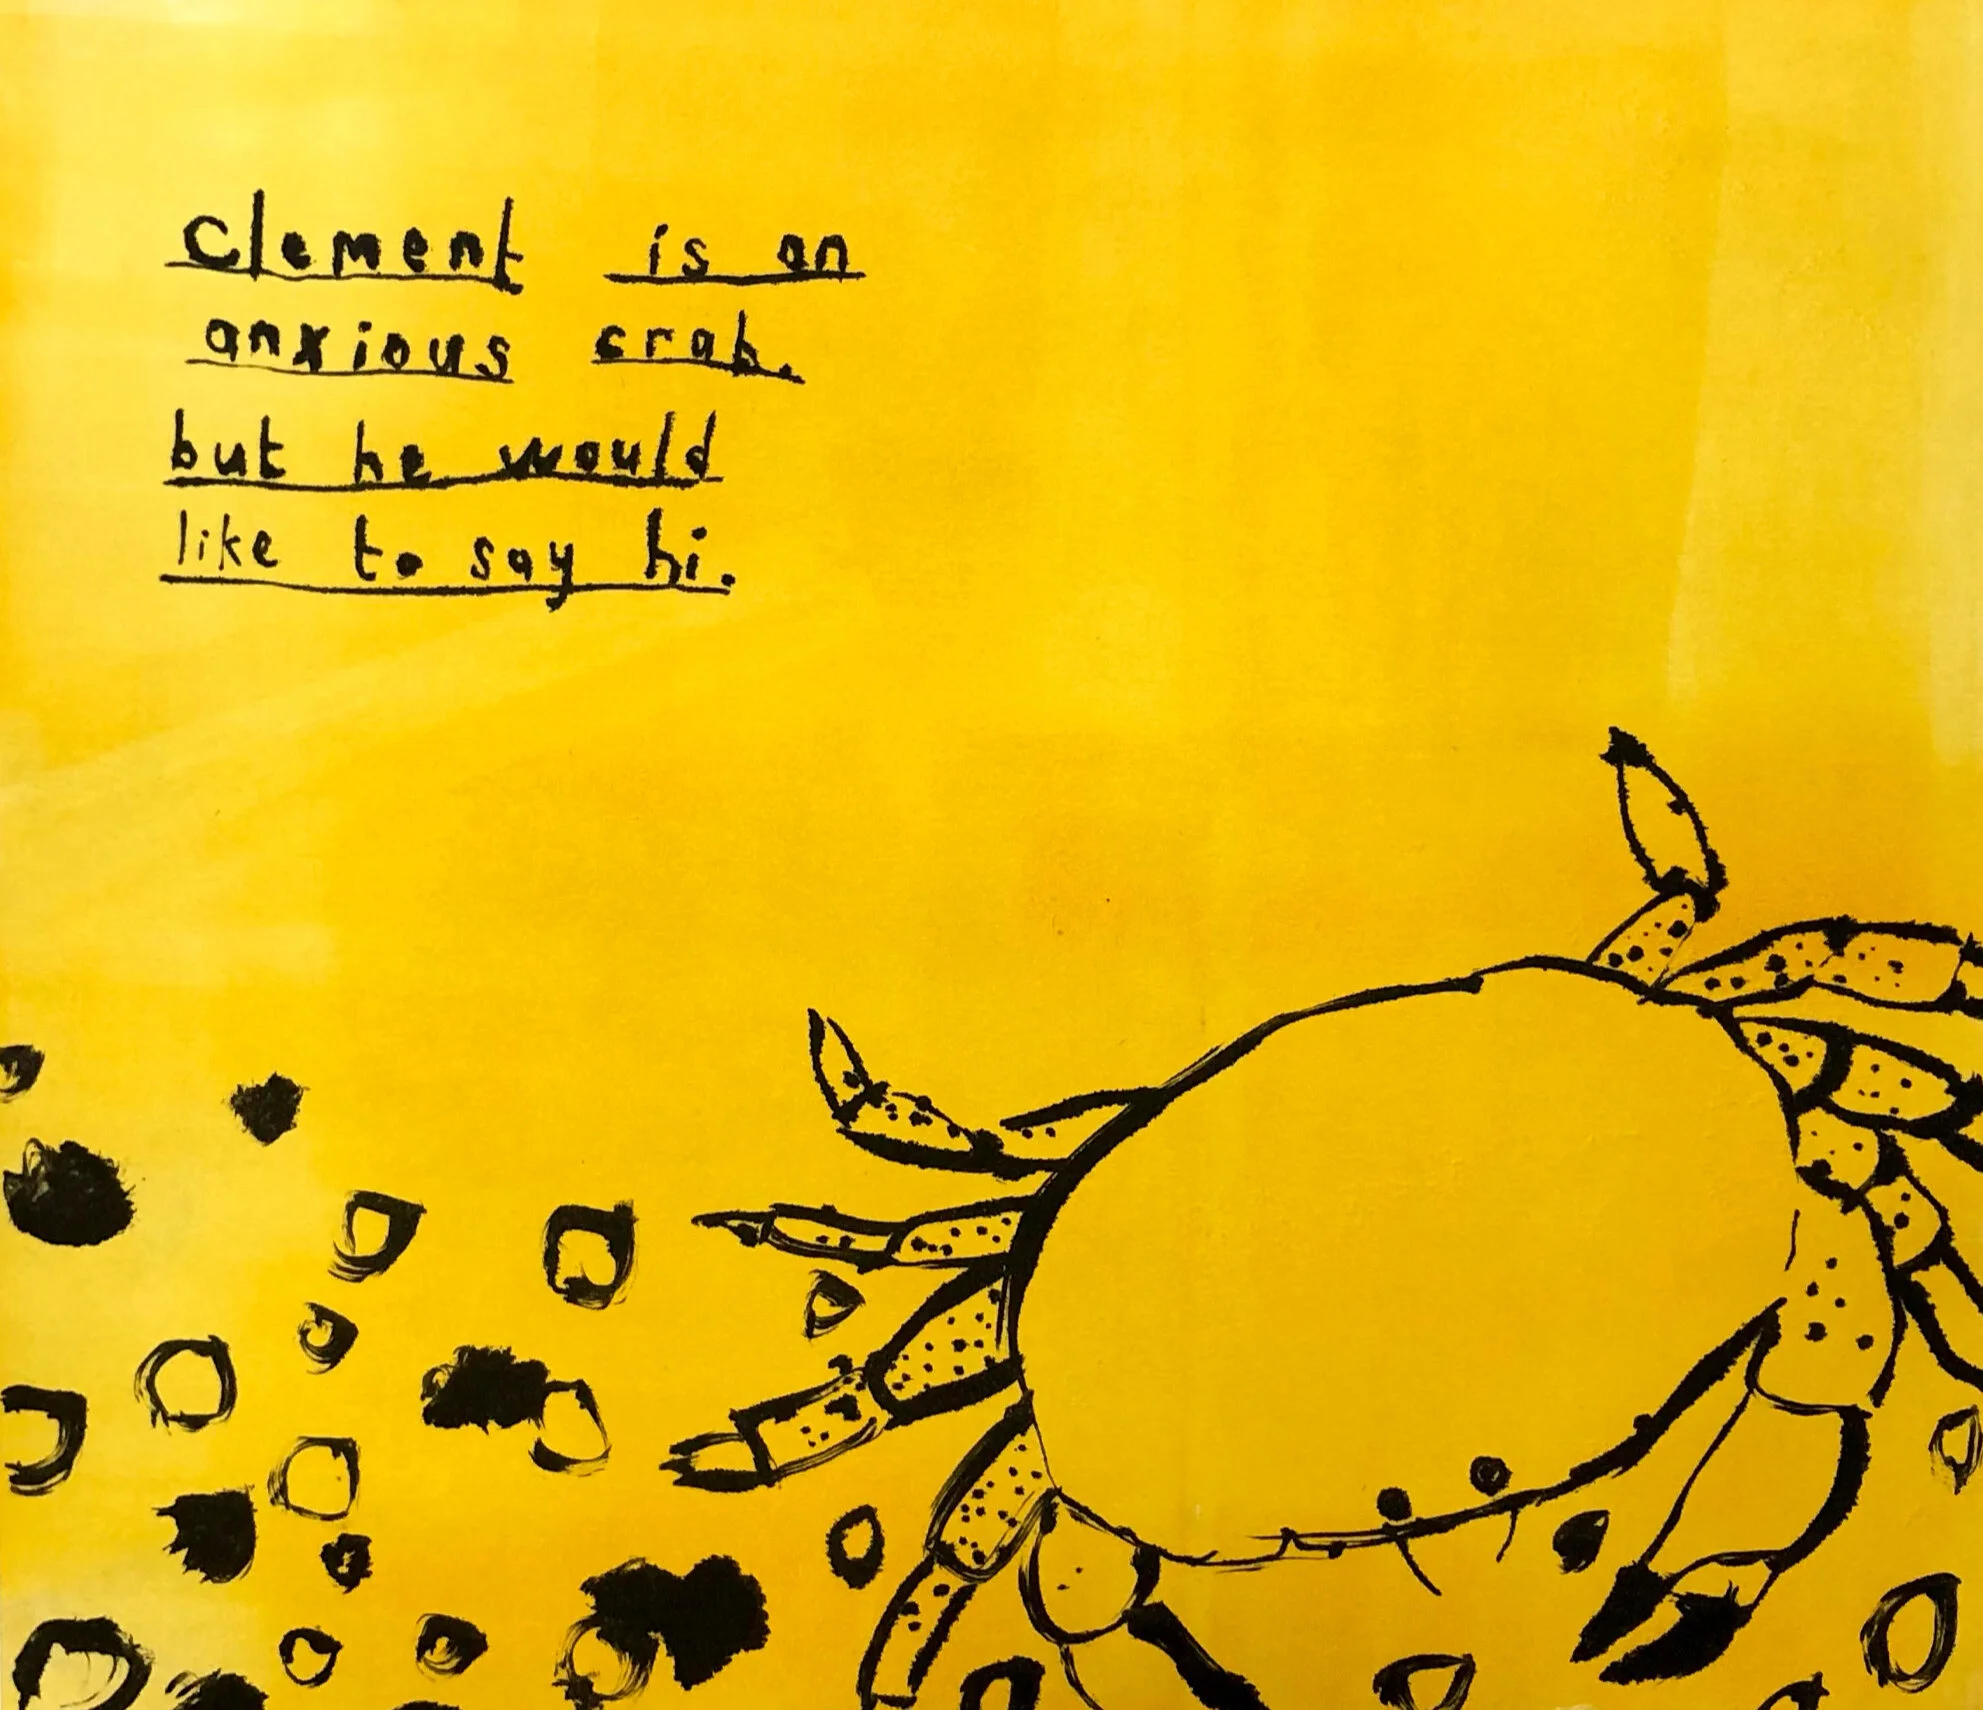 Clement is an
anxious crab.
but he would
like to say hi.